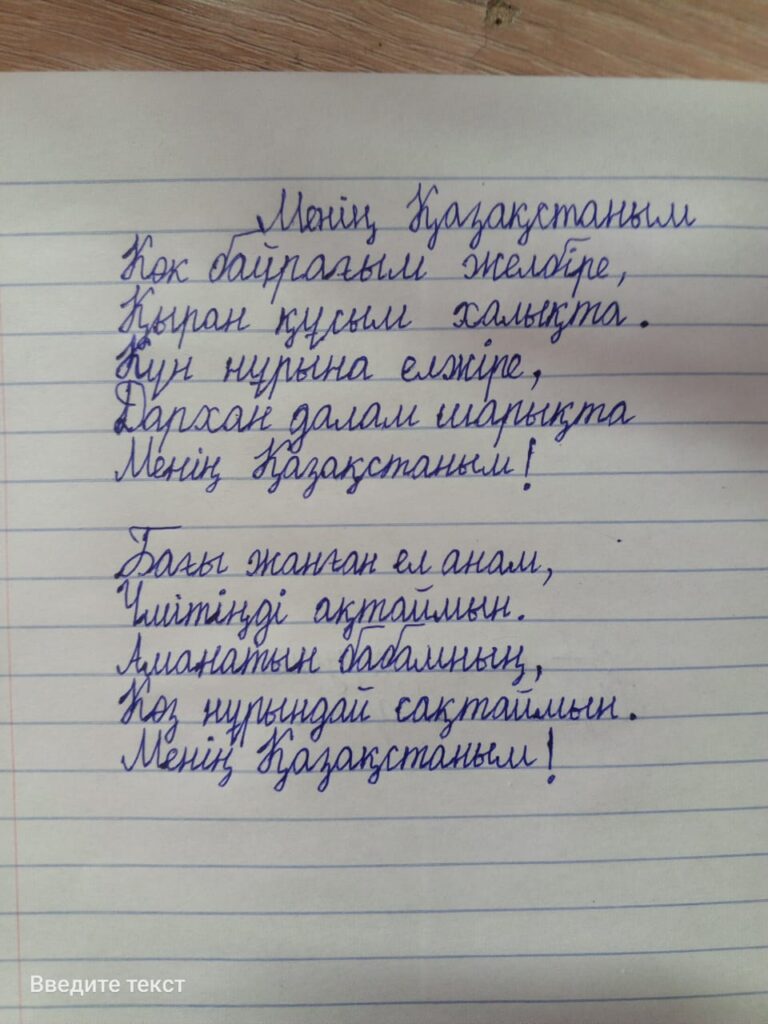 Менің Қазақстаным
Көк байрағым желбіре,
Қыран құсым халықта.
Күн нұрына елжіре,
Дархан далам шарықта
Менің Қазақстаным!
Бағы жанған ел анам,
Үмітіңді ақтаймын.
Аманатын бабамның,
Көз нұрындай сақтаймын.
Менің Қазақстаным!
Введите текст